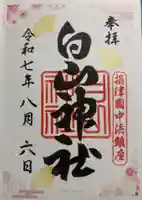 奉拝
摂津國中浜鎮座
白山神社
令和七年八月六日